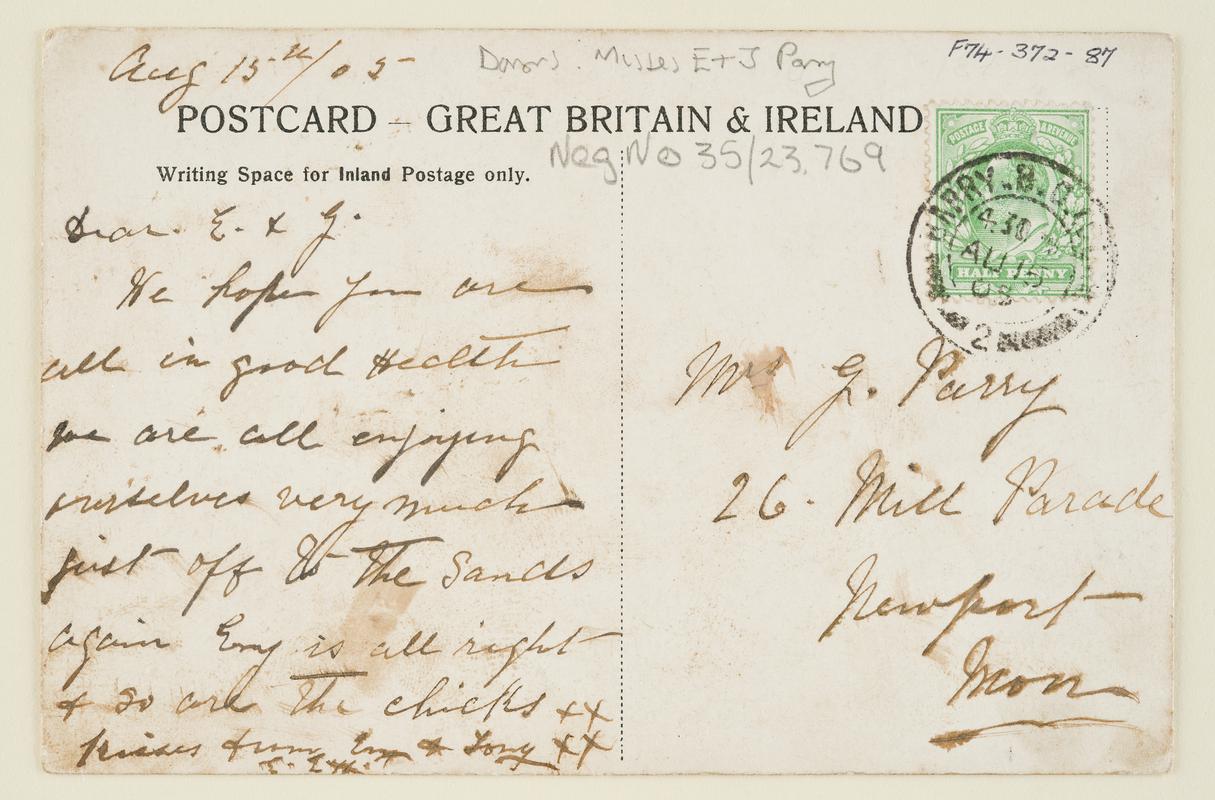 Aug 15th/05
Donors. Misses E+J Parry
F74-372-87
POSTCARD – GREAT BRITAIN & IRELAND
Neg No 35/23,769
Writing Space for Inland Postage only.
Dear E. & G.
We hope you are
all in good Health
we are all enjoying
ourselves very much
just off to the Sands
again Emy is all right
& so are the chicks xx
kisses from Em & xx
POSTAGE & REVENUE
HALF PENNY
BARRY
AU 15
2
Mrs G. Parry
26. Mill Parade
Newport
Mon